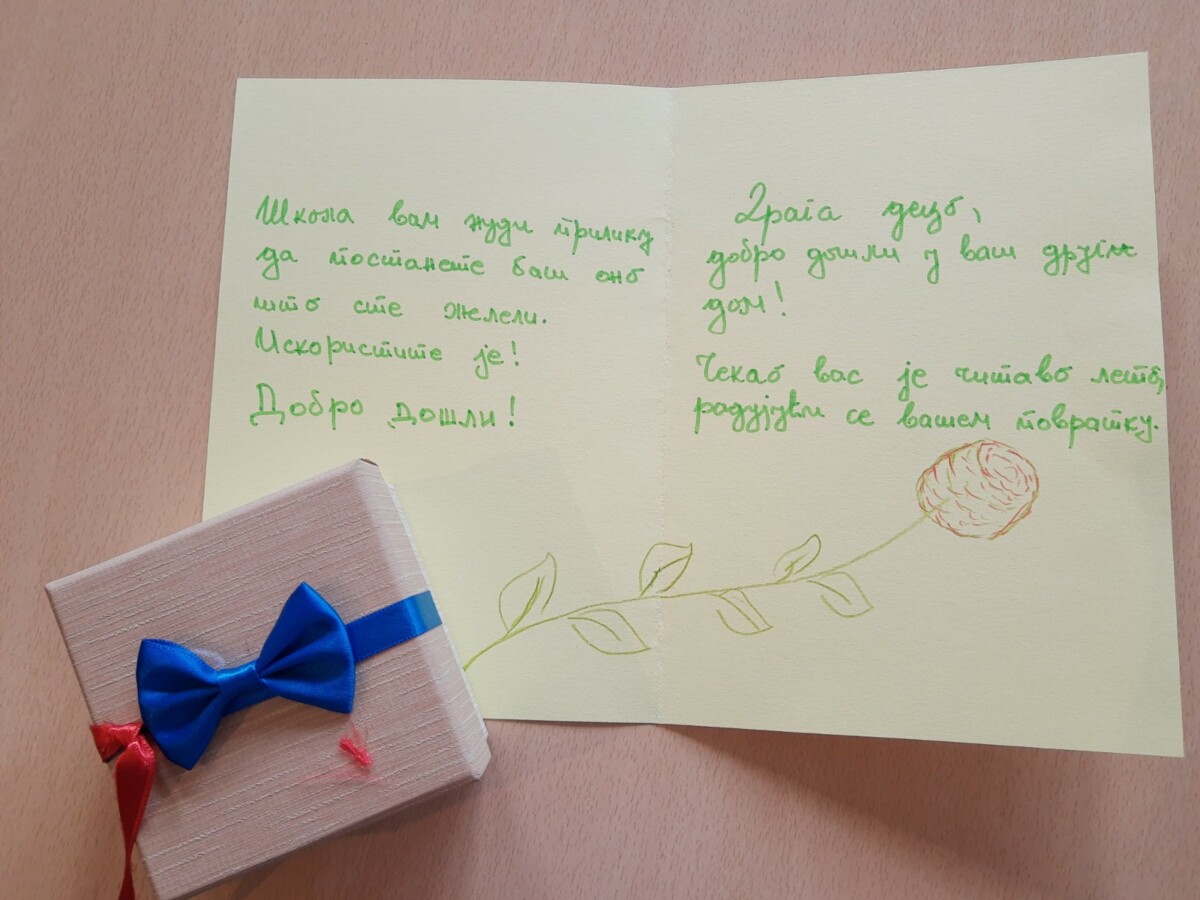 Школа вам нуди прилику
да постанете баш оно
што сте желели.
Искористите је!
Добро дошли!
Драга децо,
добро дошли у ваш други
дом!
Чекао вас је читаво лето,
радујући се вашем повратку.